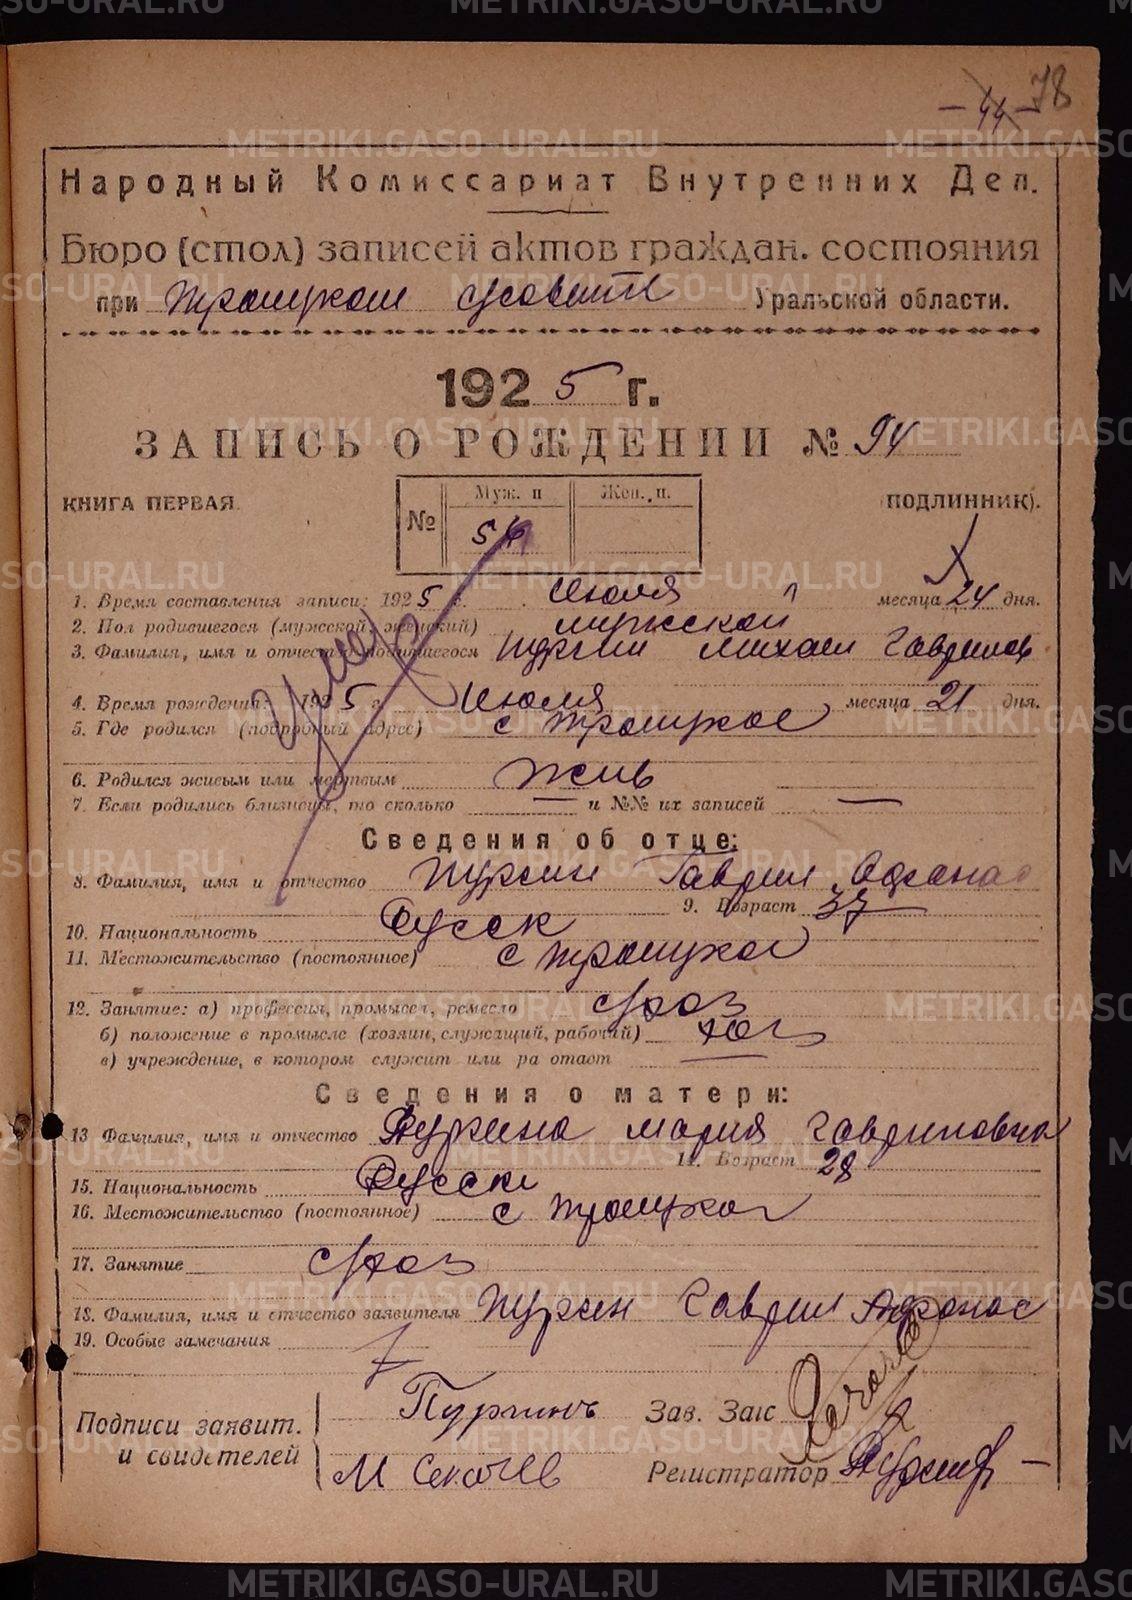 78
- 44 -
Народный Комиссариат Внутренних Дел.
Бюро (стол) записей актов граждан. состояния
при Троицком с/совете Уральской области.
1925 г.
ЗАПИСЬ О РОЖДЕНИИ № 94
КНИГА ПЕРВАЯ. (ПОДЛИННИК).
№ Муж. п Жен. п.
54
1. Время составления записи: 1925 г. Июля месяца 24 дня.
2. Пол родившегося (мужской женский) мужской
3. Фамилия, имя и отчество родившегося Пургин Михаил Гаврилов
4. Время рождения: 1925 г. Июля месяца 21 дня.
5. Где родился (подробный адрес) с Троицкое
6. Родился живым или мертвым Жив
7. Если родились близнецы, то сколько — и №№ их записей —
Умер
Сведения об отце:
8. Фамилия, имя и отчество Пургин Гаврил Афанас
9. Возраст 37
10. Национальность Русск
11. Местожительство (постоянное) с Троицкое
12. Занятие: а) профессия, промысел, ремесло с/хоз
б) положение в промысле (хозяин, служащий, рабочий) хоз
в) учреждение, в котором служит или работает —
Сведения о матери:
13 Фамилия, имя и отчество Пургина Мария Гавриловна
14. Возраст 28
15. Национальность Русск
16. Местожительство (постоянное) с Троицкое
17. Занятие с/хоз
18. Фамилия, имя и отчество заявителя Пургин Гаврил Афонас
19. Особые замечания
Подписи заявит. Пургинъ Зав. Загс
и свидетелей М Секачев Регистратор Пургин
METRIKI.GASO-URAL.RU